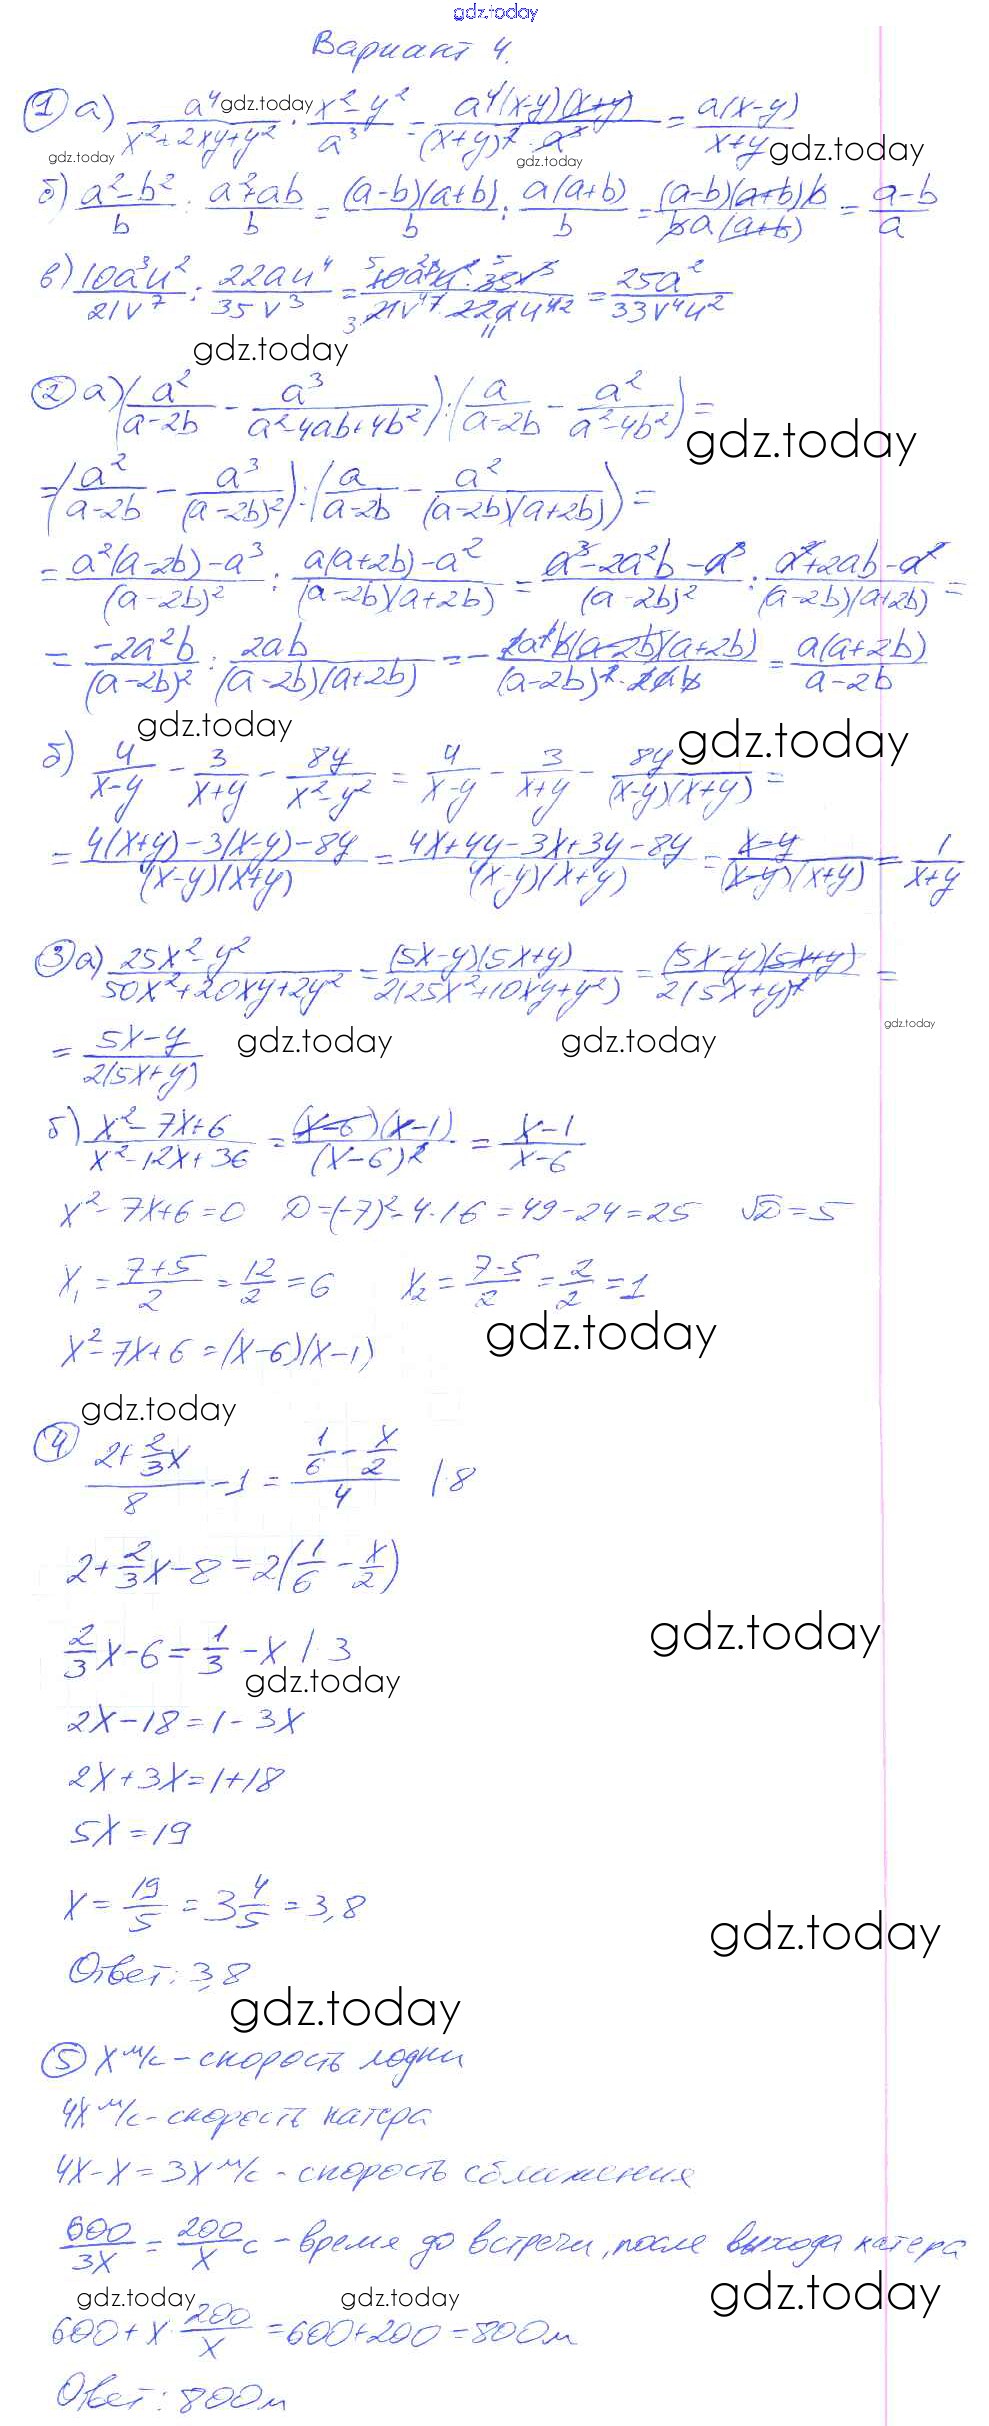 gdz.today
Вариант 4.
① а) a⁴/(x²+2xy+y²) · (x²-y²)/a³ = a⁴(x-y)(x+y)/((x+y)²·a³) = a(x-y)/(x+y)
gdz.today
gdz.today gdz.today gdz.today
б) (a²-b²)/b : (a²+ab)/b = (a-b)(a+b)/b : a(a+b)/b = (a-b)(a+b)b/(ba(a+b)) = (a-b)/a
в) 10a³u²/21v⁷ : 22au⁴/35v³ = 10a³u²·35v³/(21v⁷·22au⁴) = 25a²/33v⁴u²
gdz.today
② а) (a²/(a-2b) - a³/(a²-4ab+4b²)) : (a/(a-2b) - a²/(a²-4b²)) =
gdz.today
= (a²/(a-2b) - a³/(a-2b)²) : (a/(a-2b) - a²/((a-2b)(a+2b))) =
= (a²(a-2b)-a³)/(a-2b)² : (a(a+2b)-a²)/((a-2b)(a+2b)) = (a³-2a²b-a³)/(a-2b)² : (a²+2ab-a²)/((a-2b)(a+2b)) =
= -2a²b/(a-2b)² : 2ab/((a-2b)(a+2b)) = - 2a²b(a-2b)(a+2b)/((a-2b)²·2ab) = a(a+2b)/(a-2b)
gdz.today gdz.today
б) 4/(x-y) - 3/(x+y) - 8y/(x²-y²) = 4/(x-y) - 3/(x+y) - 8y/((x-y)(x+y)) =
= (4(x+y)-3(x-y)-8y)/((x-y)(x+y)) = (4x+4y-3x+3y-8y)/((x-y)(x+y)) = (x-y)/((x-y)(x+y)) = 1/(x+y)
③ а) (25x²-y²)/(50x²+20xy+2y²) = (5x-y)(5x+y)/(2(25x²+10xy+y²)) = (5x-y)(5x+y)/(2(5x+y)²) =
gdz.today
= (5x-y)/(2(5x+y))
gdz.today gdz.today
б) (x²-7x+6)/(x²-12x+36) = (x-6)(x-1)/(x-6)² = (x-1)/(x-6)
x²-7x+6=0 D=(-7)²-4·1·6=49-24=25 √D=5
x₁ = (7+5)/2 = 12/2 = 6 x₂ = (7-5)/2 = 2/2 = 1
gdz.today
x²-7x+6=(x-6)(x-1)
gdz.today
④ (2+2/3x)/8 - 1 = (1/6 - x/2)/4 |·8
2+2/3x-8=2(1/6 - x/2)
gdz.today
2/3x-6=1/3-x |·3
gdz.today
2x-18=1-3x
2x+3x=1+18
5x=19
x=19/5=3 4/5=3,8
gdz.today
Ответ: 3,8
gdz.today
⑤ x м/с - скорость лодки
4x м/с - скорость катера
4x-x=3x м/с - скорость сближения
600/3x = 200/x с - время до встречи, после выхода катера
gdz.today gdz.today gdz.today
600+x·200/x=600+200=800м
Ответ: 800м